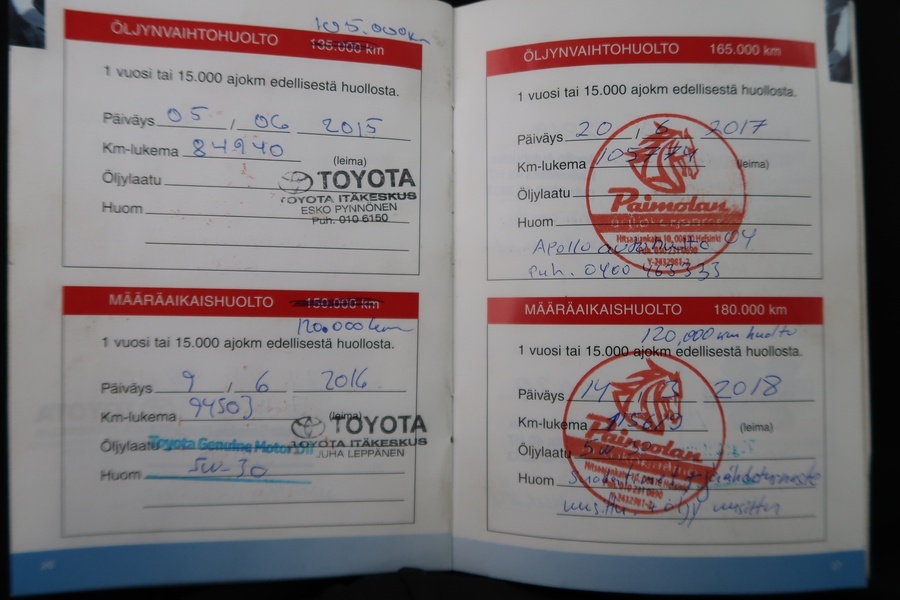 105.000km
ÖLJYNVAIHTOHUOLTO 135.000 km
1 vuosi tai 15.000 ajokm edellisestä huollosta.
Päiväys 05 / 06 2015
Km-lukema 84940
(leima)
Öljylaatu
TOYOTA
TOYOTA ITÄKESKUS
Huom
ESKO PYNNÖNEN
Puh. 010 6150
MÄÄRÄAIKAISHUOLTO 150.000 km
120.000 km
1 vuosi tai 15.000 ajokm edellisestä huollosta.
Päiväys 9 / 6 2016
Km-lukema 94503
(leima)
TOYOTA
Öljylaatu Toyota Genuine Motor Oil
TOYOTA ITÄKESKUS
JUHA LEPPÄNEN
Huom 5W-30
ÖLJYNVAIHTOHUOLTO 165.000 km
1 vuosi tai 15.000 ajokm edellisestä huollosta.
Päiväys 20 / 6 2017
Km-lukema 105774
(leima)
Öljylaatu
Paimolan
Huom
Hitsaajankatu 10, 00810 Helsinki
Apollo 04
Y-2432981-2
puh. 0400 463333
MÄÄRÄAIKAISHUOLTO 180.000 km
120,000 km huolto
1 vuosi tai 15.000 ajokm edellisestä huollosta.
Päiväys 14 / 3 2018
Km-lukema
(leima)
Paimolan
Öljylaatu 5W
Huom
uusittu, + öljy uusittu